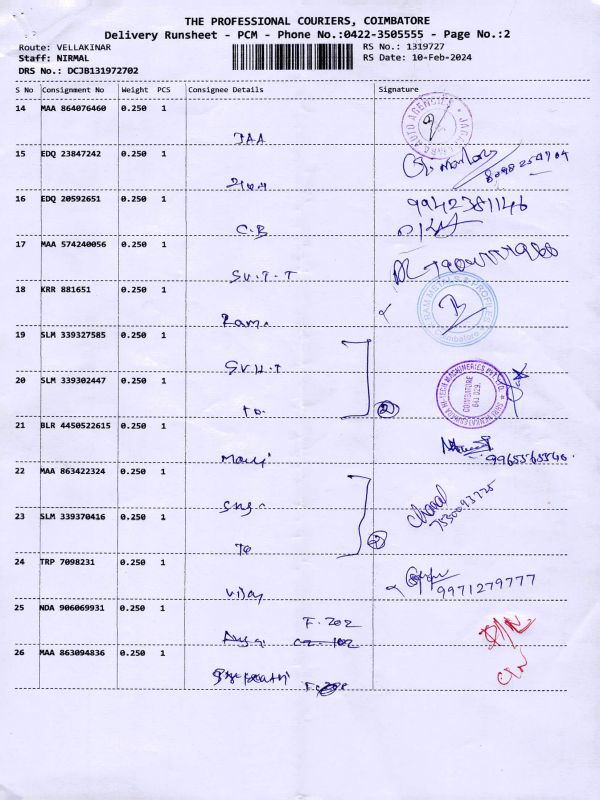 THE PROFESSIONAL COURIERS, COIMBATORE
Delivery Runsheet - PCM - Phone No.:0422-3505555 - Page No.:2
Route: VELLAKINAR RS No.: 1319727
Staff: NIRMAL RS Date: 10-Feb-2024
DRS No.: DCJB131972702
S No Consignment No Weight PCS Consignee Details Signature
14 MAA 864076460 0.250 1
JAA
15 EDQ 23847242 0.250 1
16 EDQ 20592651 0.250 1 9942381146
C.B
17 MAA 574240056 0.250 1
S.V.T.T
18 KRR 881651 0.250 1
RAM METALS & PROFILES
Coimbatore
Ram.
19 SLM 339327585 0.250 1
S.V.H.T
20 SLM 339302447 0.250 1
SHRI VENKATESHWARA HI-TECH MACHINERIES PVT. LTD.
COIMBATORE
641 029.
to. 2
21 BLR 4450522615 0.250 1
9965565546
22 MAA 863422324 0.250 1
7530093725
23 SLM 339370416 0.250 1
To 2
24 TRP 7098231 0.250 1
9971279777
Vijay
25 NDA 906069931 0.250 1
F.202
26 MAA 863094836 0.250 1